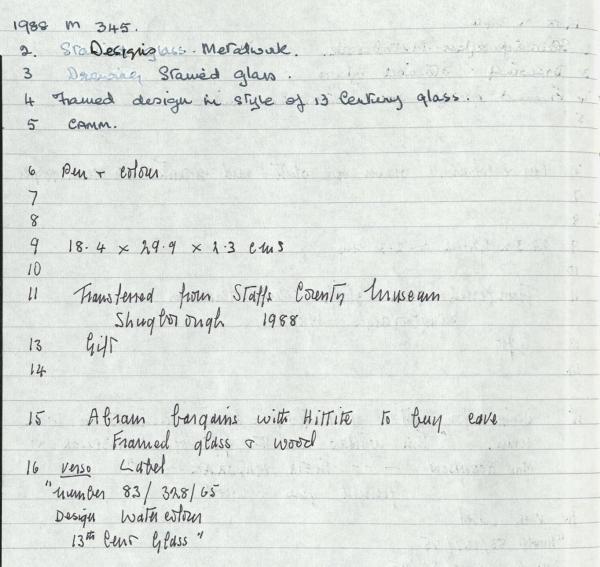 1988 M 345.
2. Designs. Metalwork.
3 Drawing Stained glass.
4 Framed design in style of 13 Century glass.
5 CAMM.
6 Pen + colour
7
8
9 18.4 x 29.9 x 2.3 cms
10
11 Transferred from Staffs County Museum
Shugborough 1988
13 Gift
14
15 Abram bargains with Hittite to buy cave
Framed glass & wood
16 verso Label
"number 83/328/65
Design Watercolour
13th Cent Glass"